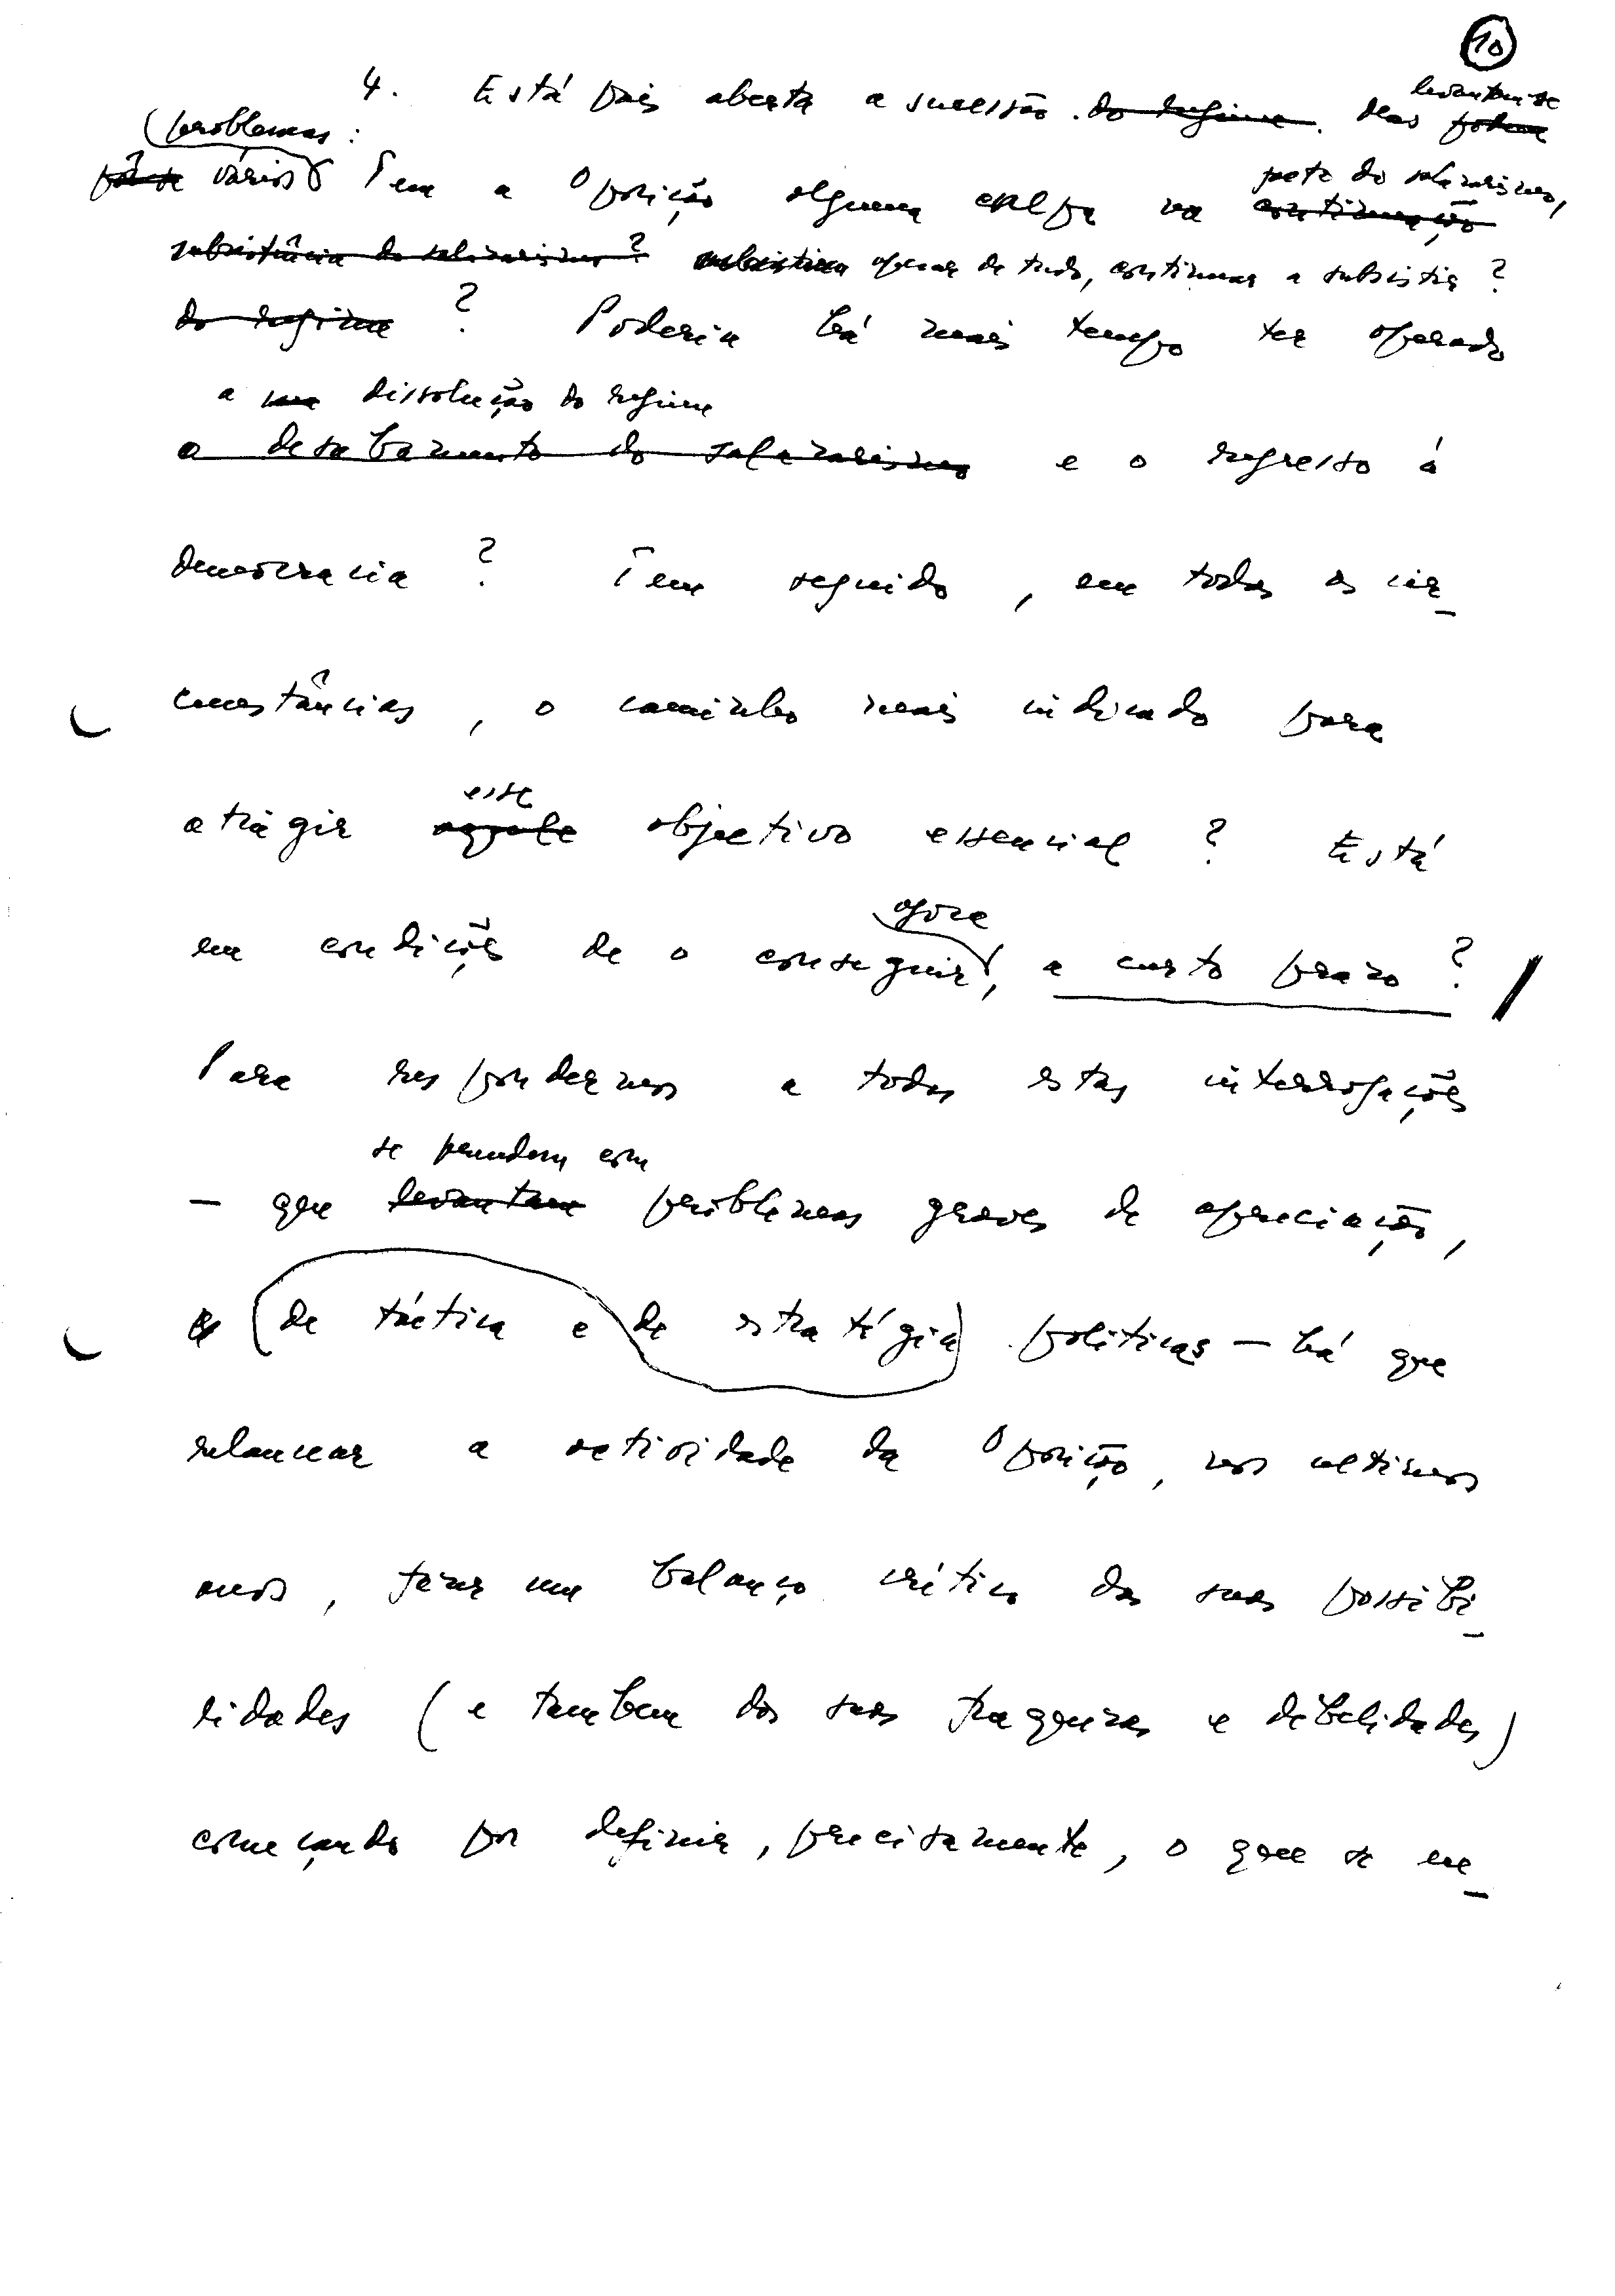 10
4. Está pois aberta a sucessão do regime. Mas levantam-se
problemas:
vários Tem a Oposição alguma culpa no facto do salazarismo,
subsistência do salazarismo? apesar de tudo, continuar a subsistir?
do regime? Poderia há mais tempo ter operado
a dissolução do regime
o desabamento do salazarismo e o regresso á
democracia? Tem seguido, em todas as cir_
cunstâncias, o caminho mais indicado para
esse
atingir aquele objectivo essencial? Está
agora
em condições de o conseguir, a curto prazo?
Para respondermos a todas estas interrogações
se prendem com
— que levantam problemas graves de apreciação,
e de táctica e de estratégia políticas — há que
relancear a actividade da Oposição, nos ultimos
anos, fazer um balanço crítico das suas possibi_
lidades (e tambem das suas fraquezas e debilidades)
começando por definir, precisamente, o que se en_